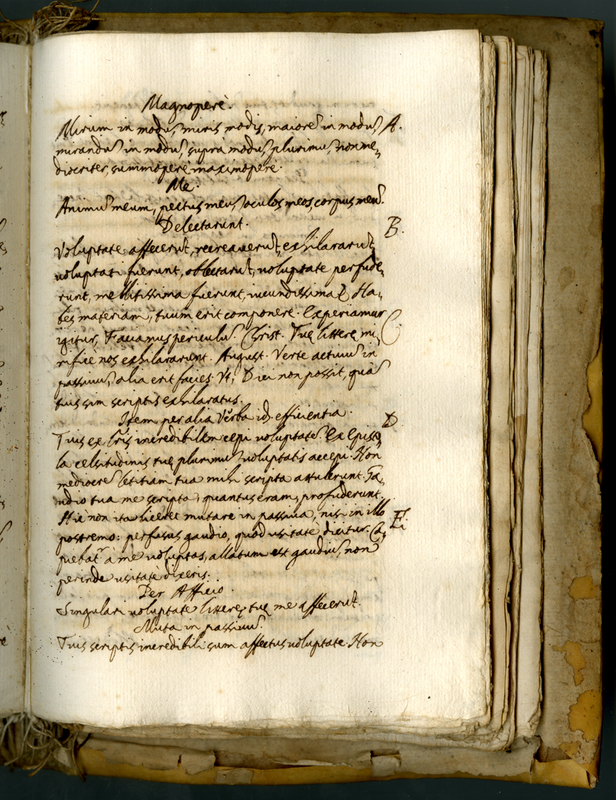 Magnoperè.
Mirum in modũ, miris modis, maiorẽ in modũ, A.
mirandũ in modũ, supra modũ, plurimũ, non me,
diocriter, summopere maximopere.
Me.
Animũ meum, pectus meũ, oculos meos corpus meũ.
Delectarunt. B.
Voluptate affecerũt, recreaverũt, exhilararũt,
voluptati fuerunt, oblectarũt, voluptate perfude,
runt, mellitissima fuerunt, iucundissima. Ha,
bes materiam, tuum erit componere. Experiamur
igitur, Faciamus periculũ. Christ. Tuę litterę mi, C.
rifice nos exhilararunt. August. Verte activũ in
passivũ, alia erit facies. Vt, Dici non possit, quã
tuis sim scriptis exhilaratus.
Item per alia Verba id efficientia. D.
Tuis ex lr̃is incredibilem cepi voluptatẽ. Ex Episto,
la celsitudinis tuę plurimũ voluptatis accepi. Non
mediocrẽ lętitiam tua mihi scripta attulerunt. Ga,
udio tua me scripta, quantus eram, profuderunt.
Hic non ita licebit mutare in passiva, nisi in illo
postremo: perfusus gaudio, quod usitatè dicitur. Ca, E.
piebat̃ a me voluptas, allatum est gaudiũ, non
perinde usitate dixeris.
Per Afficio.
Singulari voluptate litterę tuę me affecerũt.
Muta in passivũ.
Tuis scriptis incredibili sum affectus voluptate. Non